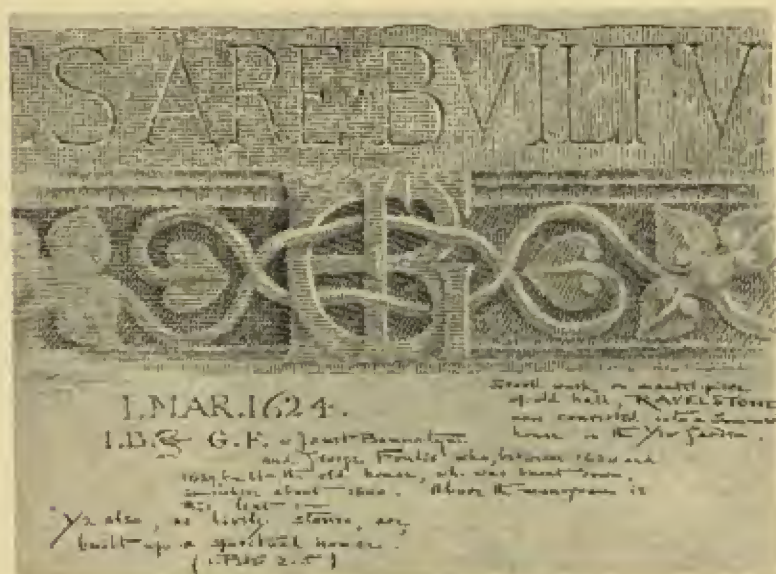 S ARE BVILT V
1. MAR. 1624.
I.B. & G.F. = Janet Bannatyne
and George Foulis who, between 1620 and
built the old house, wh. was burnt down,
about 1800. Above the monogram is
this text :—
"Ye also, as lively stones, are
built up a spiritual house.
(1. Pet 2.5)
Scroll work, on mantel-piece
of old hall, RAVELSTONE
now converted into a Summer
house in the Yew Garden.